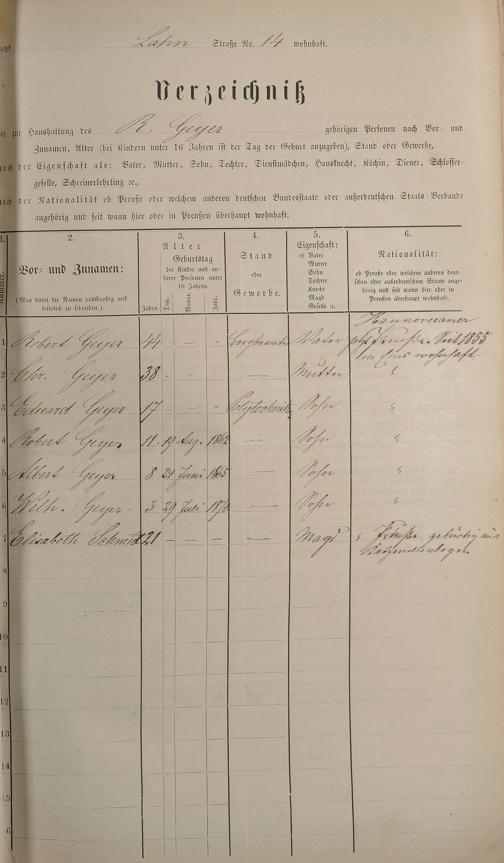 Lahn Straße No. 14 wohnhaft.
Verzeichniß
zur Haushaltung des R. Geyer gehörigen Personen nach Vor- und
Zunamen, Alter (bei Kindern unter 16 Jahren ist der Tag der Geburt anzugeben), Stand oder Gewerbe,
nach der Eigenschaft als: Vater, Mutter, Sohn, Tochter, Dienstmädchen, Hausknecht, Köchin, Diener, Schlosser-
geselle, Schreinerlehrling ꝛc.,
nach der Nationalität ob Preuße oder welchem anderen deutschen Bundesstaate oder außerdeutschen Staats-Verbande
angehörig und seit wann hier oder in Preußen überhaupt wohnhaft.
1. 2. 3. 4. 5. 6.
Nummer.
Vor- und Zunamen:
(Man bittet die Namen vollständig und
leserlich zu schreiben.)
Alter
Geburtstag
der Kinder und an-
derer Personen unter
16 Jahren.
Jahre. Tag. Monat. Jahr.
Stand
oder
Gewerbe.
Eigenschaft:
ob Vater
Mutter
Sohn
Tochter
Knecht
Magd
Geselle ꝛc.
Nationalität:
ob Preuße oder welchem anderen deut-
schen oder außerdeutschen Staate ange-
hörig und seit wann hier oder in
Preußen überhaupt wohnhaft.
Hannoveraner
1 Robert Geyer 44 — — — Bergbeamter Vater jetzt Preuße. Seit 1855
in Ems wohnhaft
2 Chr. Geyer 38 — — — — Mutter "
3 Eduard Geyer 17 — — — Polytechnik. Sohn "
4 Robert Geyer 11 19 Aug. 1862 — Sohn "
5 Albert Geyer 8 24 Juni 1865 — Sohn "
6 Wilh. Geyer 3 29 Juli 1870 — Sohn "
7 Elisabeth Schmidt 21 — — — — Magd Preuße gebürtig aus
8
9
10
11
12
13
14
15
6